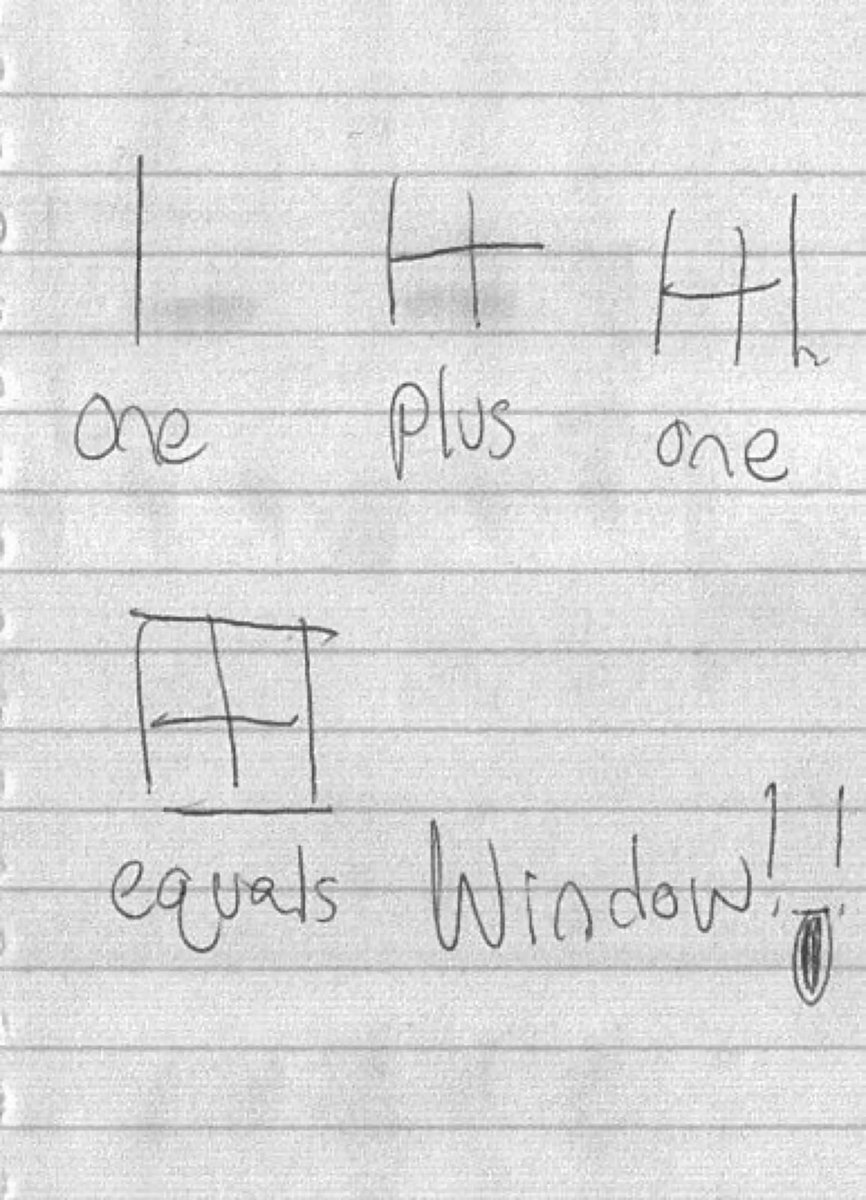 one plus one
equals Window!!